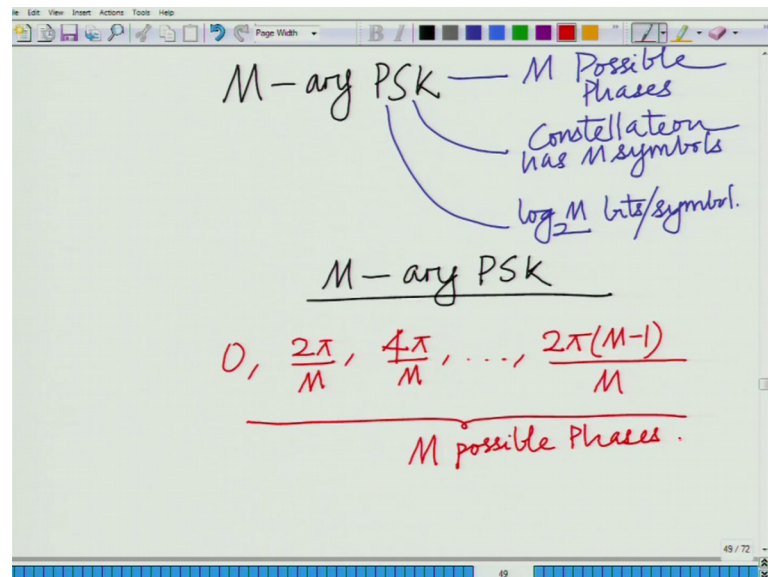 le Edit View Insert Actions Tools Help
Page Width
B I
M-ary PSK — M Possible
Phases
Constellation
has M symbols
log₂M bits/symbol.
M-ary PSK
0, 2π/M, 4π/M, ..., 2π(M-1)/M
M possible Phases.
49 / 72
49